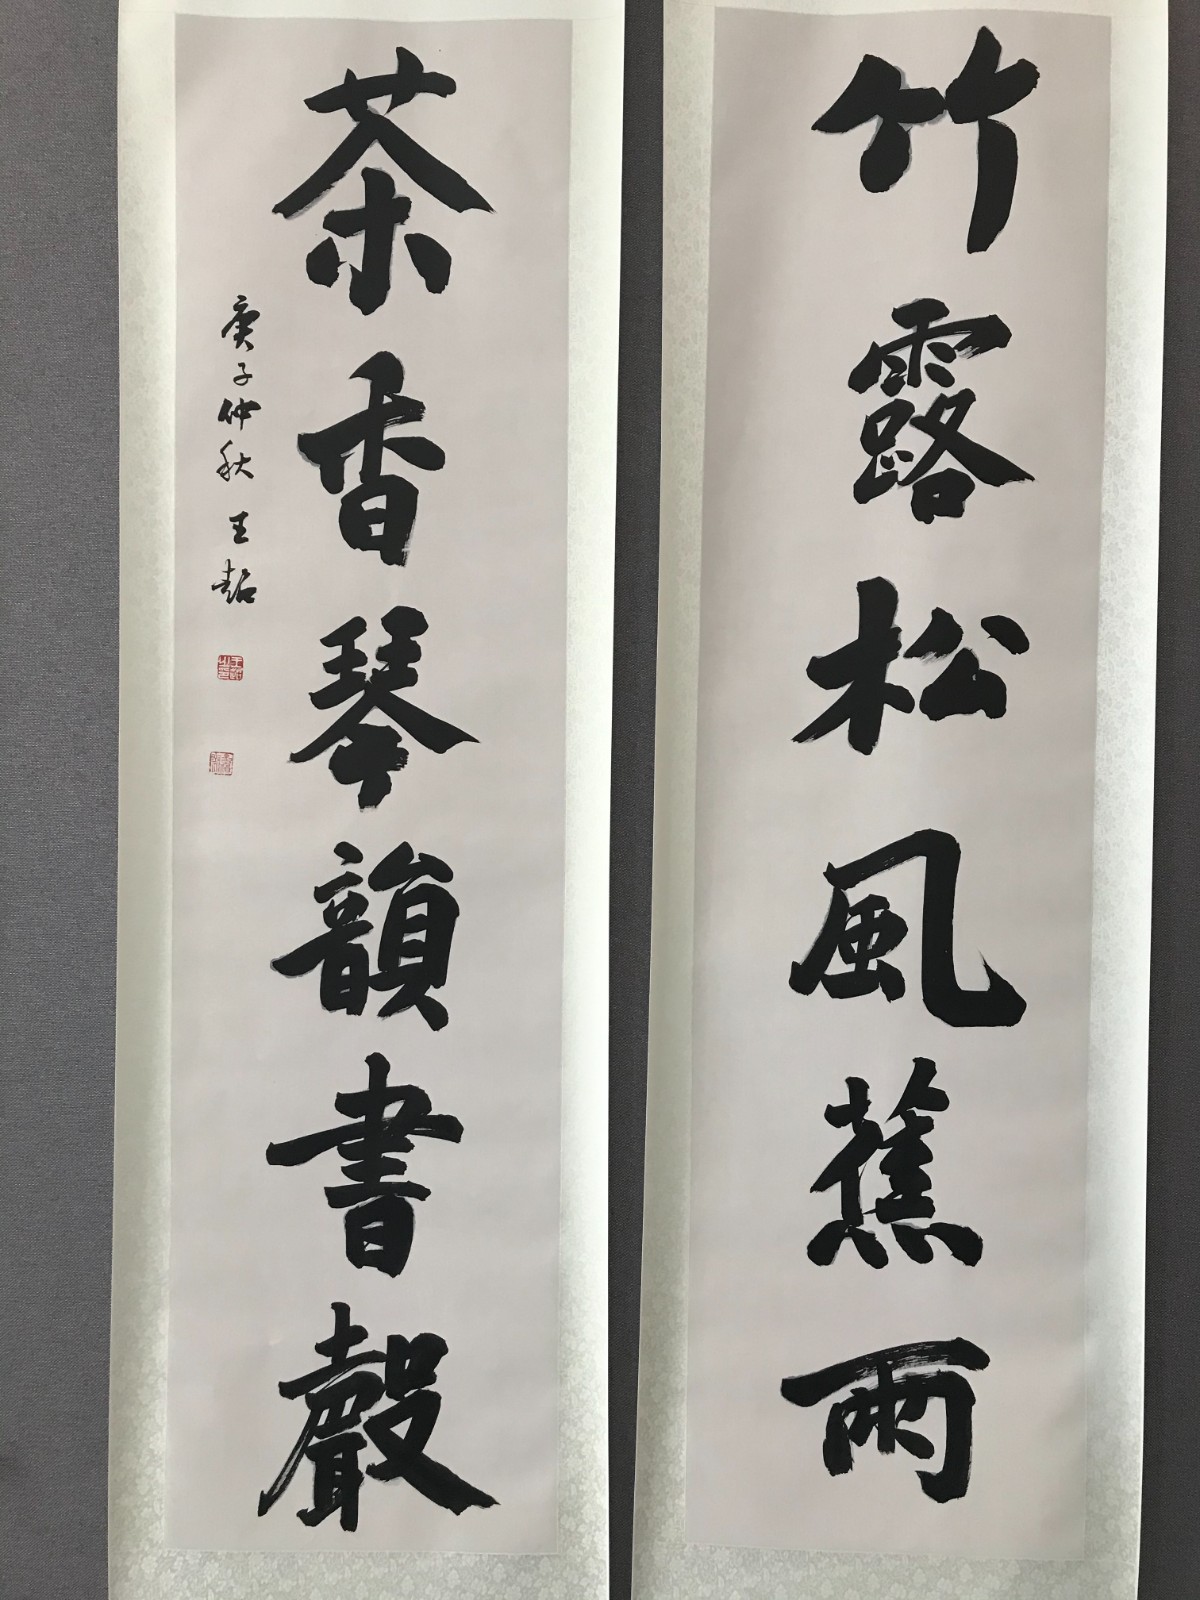 竹露松風蕉雨
茶香琴韻書聲
庚子仲秋 王超